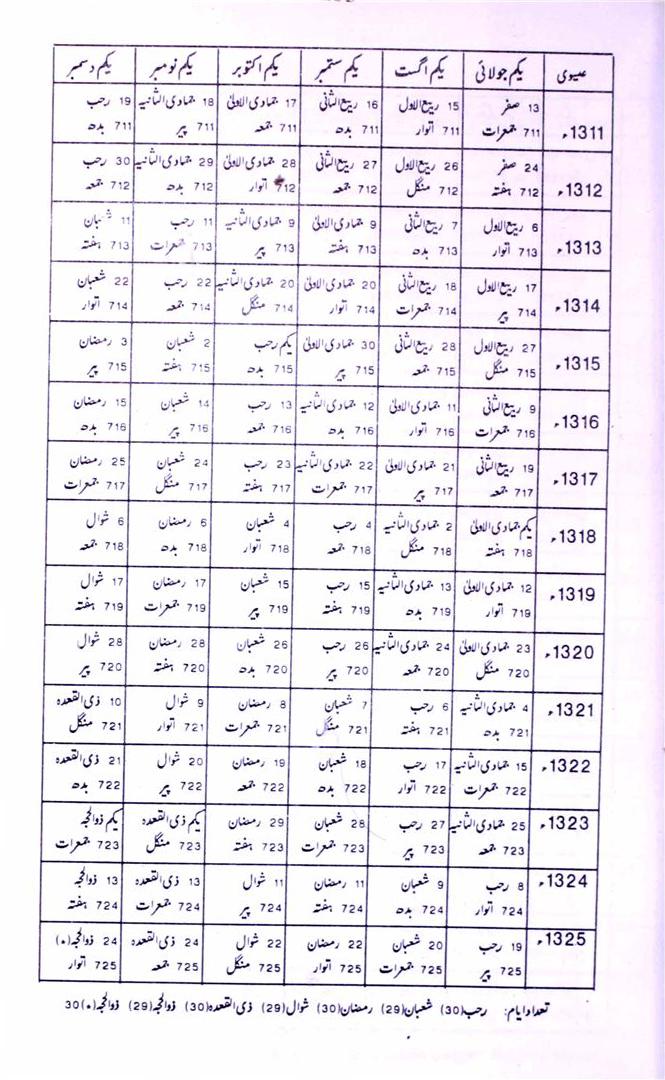 عیسوی یکم جولائی یکم اگست یکم ستمبر یکم اکتوبر یکم نومبر یکم دسمبر
1311ء 13 صفر 15 ربیع الاول 16 ربیع الثانی 17 جمادی الاولیٰ 18 جمادی الثانیہ 19 رجب
711 جمعرات 711 اتوار 711 بدھ 711 جمعہ 711 پیر 711 بدھ
1312ء 24 صفر 26 ربیع الاول 27 ربیع الثانی 28 جمادی الاولیٰ 29 جمادی الثانیہ 30 رجب
712 ہفتہ 712 منگل 712 جمعہ 712 اتوار 712 بدھ 712 جمعہ
1313ء 6 ربیع الاول 7 ربیع الثانی 9 جمادی الاولیٰ 9 جمادی الثانیہ 11 رجب 11 شعبان
713 اتوار 713 بدھ 713 ہفتہ 713 پیر 713 جمعرات 713 ہفتہ
1314ء 17 ربیع الاول 18 ربیع الثانی 20 جمادی الاولیٰ 20 جمادی الثانیہ 22 رجب 22 شعبان
714 پیر 714 جمعرات 714 اتوار 714 منگل 714 جمعہ 714 اتوار
1315ء 27 ربیع الاول 28 ربیع الثانی 30 جمادی الاولیٰ یکم رجب 2 شعبان 3 رمضان
715 منگل 715 جمعہ 715 پیر 715 بدھ 715 ہفتہ 715 پیر
1316ء 9 ربیع الثانی 11 جمادی الاولیٰ 12 جمادی الثانیہ 13 رجب 14 شعبان 15 رمضان
716 جمعرات 716 اتوار 716 بدھ 716 جمعہ 716 پیر 716 بدھ
1317ء 19 ربیع الثانی 21 جمادی الاولیٰ 22 جمادی الثانیہ 23 رجب 24 شعبان 25 رمضان
717 جمعہ 717 پیر 717 جمعرات 717 ہفتہ 717 منگل 717 جمعرات
1318ء یکم جمادی الاولیٰ 2 جمادی الثانیہ 4 رجب 4 شعبان 6 رمضان 6 شوال
718 ہفتہ 718 منگل 718 جمعہ 718 اتوار 718 بدھ 718 جمعہ
1319ء 12 جمادی الاولیٰ 13 جمادی الثانیہ 15 رجب 15 شعبان 17 رمضان 17 شوال
719 اتوار 719 بدھ 719 ہفتہ 719 پیر 719 جمعرات 719 ہفتہ
1320ء 23 جمادی الاولیٰ 24 جمادی الثانیہ 26 رجب 26 شعبان 28 رمضان 28 شوال
720 منگل 720 جمعہ 720 پیر 720 بدھ 720 ہفتہ 720 پیر
1321ء 4 جمادی الثانیہ 6 رجب 7 شعبان 8 رمضان 9 شوال 10 ذی القعدہ
721 بدھ 721 ہفتہ 721 منگل 721 جمعرات 721 اتوار 721 منگل
1322ء 15 جمادی الثانیہ 17 رجب 18 شعبان 19 رمضان 20 شوال 21 ذی القعدہ
722 جمعرات 722 اتوار 722 بدھ 722 جمعہ 722 پیر 722 بدھ
1323ء 25 جمادی الثانیہ 27 رجب 28 شعبان 29 رمضان یکم ذی القعدہ یکم ذوالحجہ
723 جمعہ 723 پیر 723 جمعرات 723 ہفتہ 723 منگل 723 جمعرات
1324ء 8 رجب 9 شعبان 11 رمضان 11 شوال 13 ذی القعدہ 13 ذوالحجہ
724 اتوار 724 بدھ 724 ہفتہ 724 پیر 724 جمعرات 724 ہفتہ
1325ء 19 رجب 20 شعبان 22 رمضان 22 شوال 24 ذی القعدہ 24 ذوالحجہ(٭)
725 پیر 725 جمعرات 725 اتوار 725 منگل 725 جمعہ 725 اتوار
تعداد ایام: رجب(30) شعبان(29) رمضان(30) شوال(29) ذی القعدہ(30) ذوالحجہ(29) ذوالحجہ(٭)30